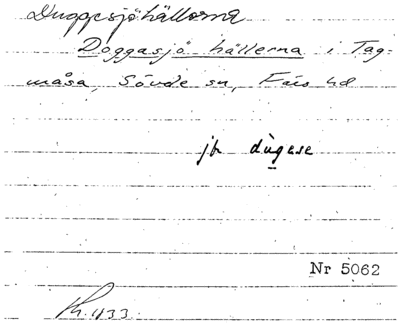 Duggesjöhällorna
Doggasjö hällerna i Tag-
måsa, Sövde sn, Färs hd
jfr dùgese
Nr 5062